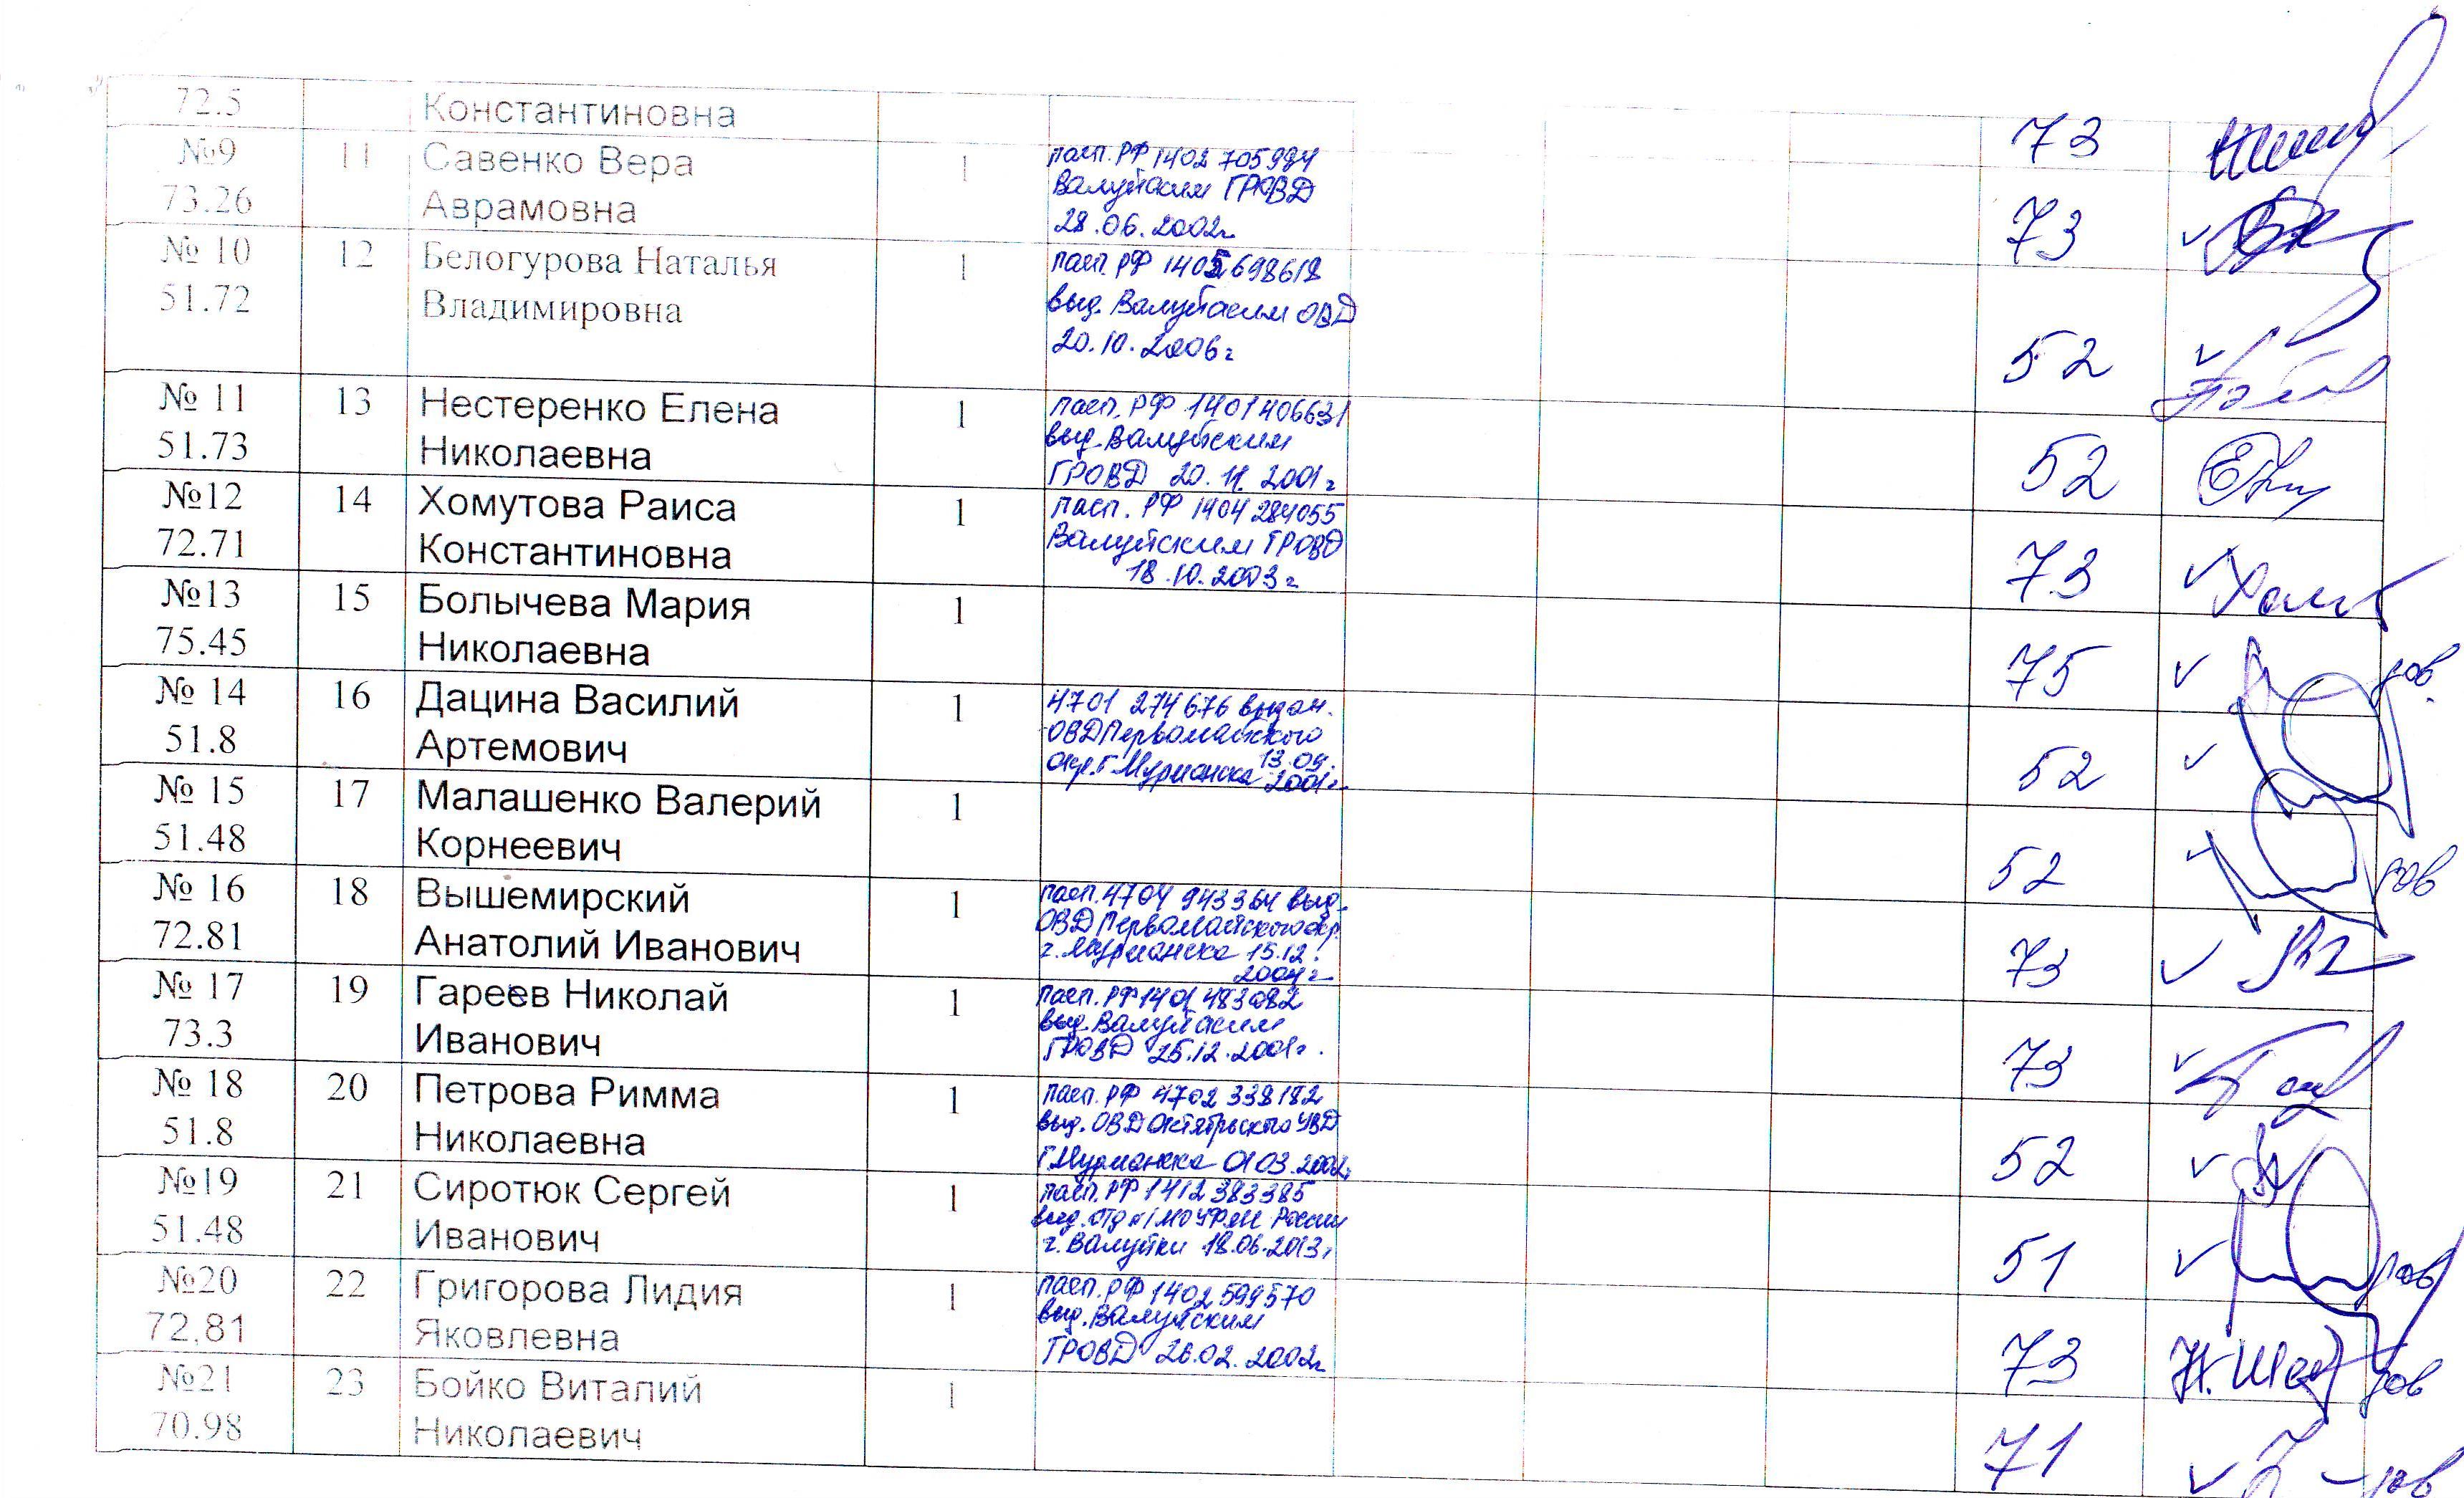 72.5 Константиновна 73
№9 11 Савенко Вера 1 пасп. РФ 1402 705994
73.26 Аврамовна Валуйским ГРОВД 73
28.06.2002г
№ 10 12 Белогурова Наталья 1 пасп. РФ 1405 698618
51.72 Владимировна выд. Валуйским ОВД
20.10.2006г 52
№ 11 13 Нестеренко Елена 1 пасп. РФ 1401 406631
51.73 Николаевна выд. Валуйским 52
ГРОВД 20.11.2001г
№12 14 Хомутова Раиса 1 пасп. РФ 1404 284055
72.71 Константиновна Валуйским ГРОВД 73
18.10.2003г
№13 15 Болычева Мария 1
75.45 Николаевна 75
№ 14 16 Дацина Василий 1 4701 274676 выдан.
51.8 Артемович ОВД Первомайского 52
окр. г Мурманска 13.09.
2001г
№ 15 17 Малашенко Валерий 1
51.48 Корнеевич 52
№ 16 18 Вышемирский 1 пасп. 4704 943364 выд.
72.81 Анатолий Иванович ОВД Первомайского окр. 73
г. Мурманска 15.12.
2004г
№ 17 19 Гареев Николай 1 пасп. РФ 1401 483082
73.3 Иванович выд. Валуйским 73
ГРОВД 25.12.2001г.
№ 18 20 Петрова Римма 1 пасп. РФ 4702 338182
51.8 Николаевна выд. ОВД Октябрьского УВД 52
г Мурманска 01 03.2002г
№19 21 Сиротюк Сергей 1 пасп. РФ 1412 383385
51.48 Иванович выд. отд №1 МО УФМС России 51
г. Валуйки 18.06.2013г
№20 22 Григорова Лидия 1 пасп. РФ 1402 599570
72.81 Яковлевна выд. Валуйским 73
ГРОВД 26.02.2002г
№21 23 Бойко Виталий 1
70.98 Николаевич 71